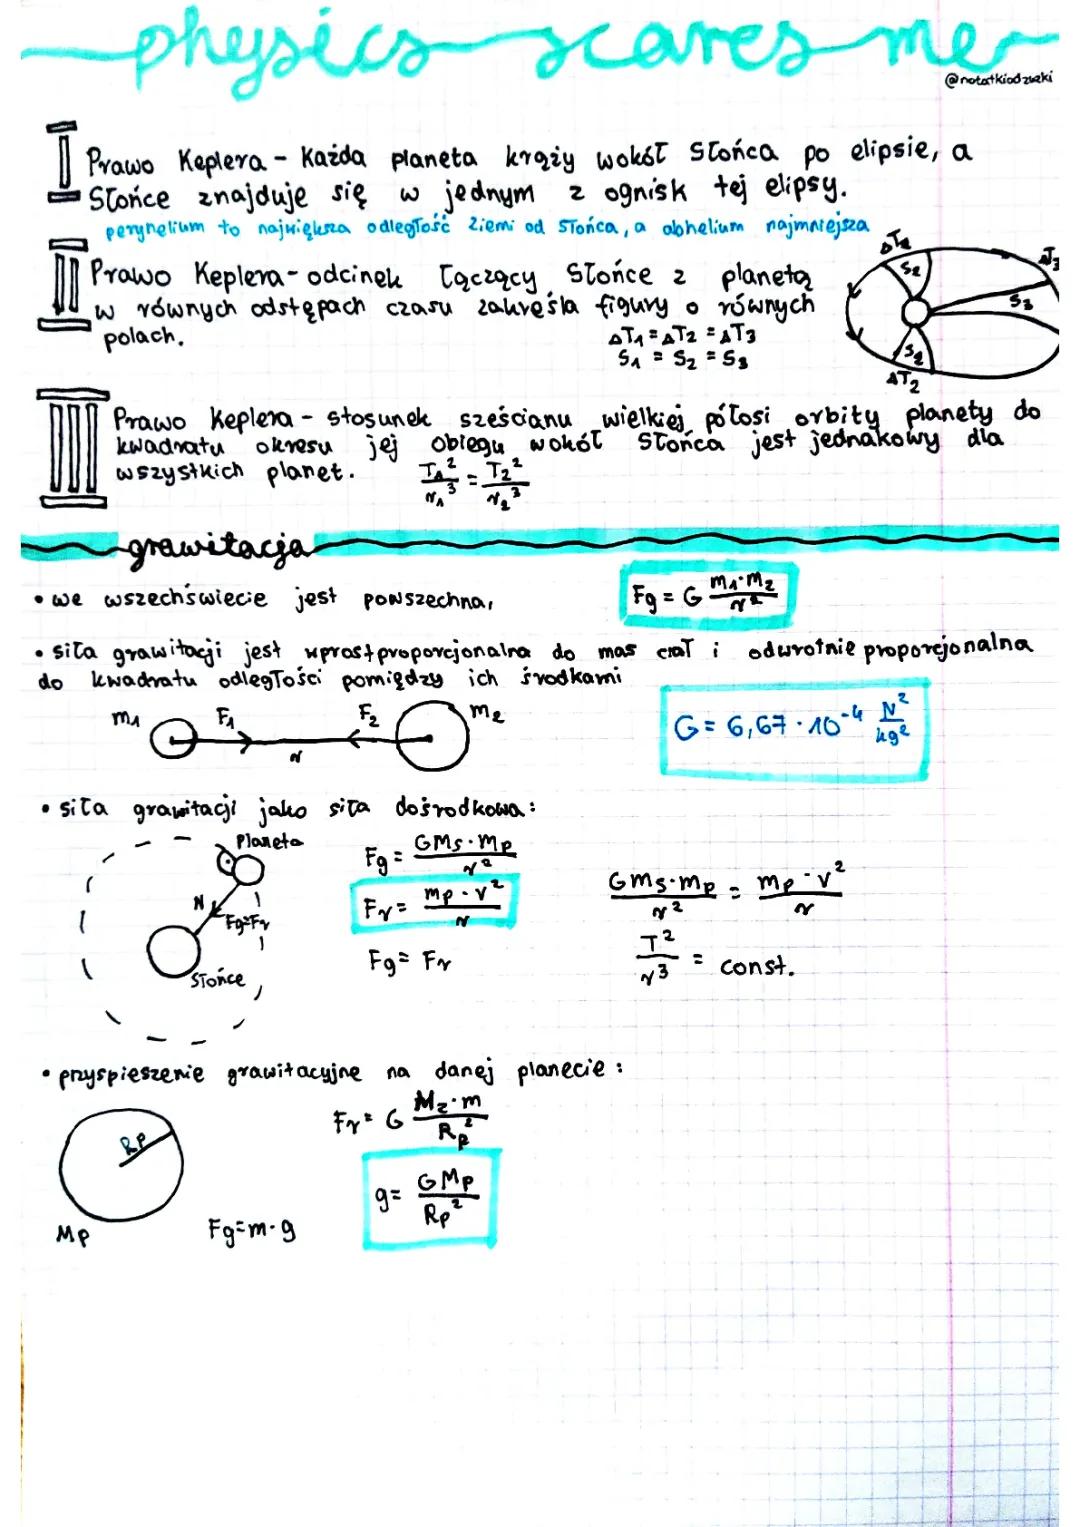 physics scares me
@notatkiodzuzki
I Prawo Keplera - Każda planeta krąży wokół Słońca po elipsie, a
Słońce znajduje się w jednym z ognisk tej elipsy.
peryhelium to największa odległość Ziemi od Słońca, a abhelium najmniejsza
II Prawo Keplera - odcinek łączący Słońce z planetą
w równych odstępach czasu zakreśla figury o równych
polach.
ΔT₁ = ΔT₂ = ΔT₃
S₁ = S₂ = S₃
S₂
S₃
S₂
ΔT₂
III Prawo Keplera - stosunek sześcianu wielkiej półosi orbity planety do
kwadratu okresu jej obiegu wokół Słońca jest jednakowy dla
wszystkich planet. T₁²/r₁³ = T₂²/r₂³
grawitacja
• we wszechświecie jest powszechna,
Fg = G m₁·m₂/r²
• siła grawitacji jest wprost proporcjonalna do mas ciał i odwrotnie proporcjonalna
do kwadratu odległości pomiędzy ich środkami
m₁ F₁ F₂ m₂
r
G = 6,67 · 10⁻⁴ N²/kg²
• siła grawitacji jako siła dośrodkowa:
Planeta
Fg=Fr
Słońce
Fg = GMs·mp/r²
Fr = mp·v²/r
Fg = Fr
GMs·mp/r² = mp·v²/r
T²/r³ = const.
• przyspieszenie grawitacyjne na danej planecie:
Rp
Mp
Fg=m·g
Fr = G Mz·m/Rp²
g = GMp/Rp²